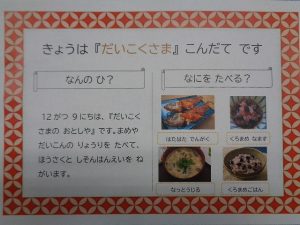 きょうは『だいこくさま』こんだて です
なんの ひ？
12がつ 9にちは、『だいこく
さまの おとしや』です。まめや
だいこんの りょうりを たべて、
ほうさくと しそんはんえいを ね
がいます。
なにを たべる？
はたはた でんがく
くろまめ なます
なっとうじる
くろまめごはん